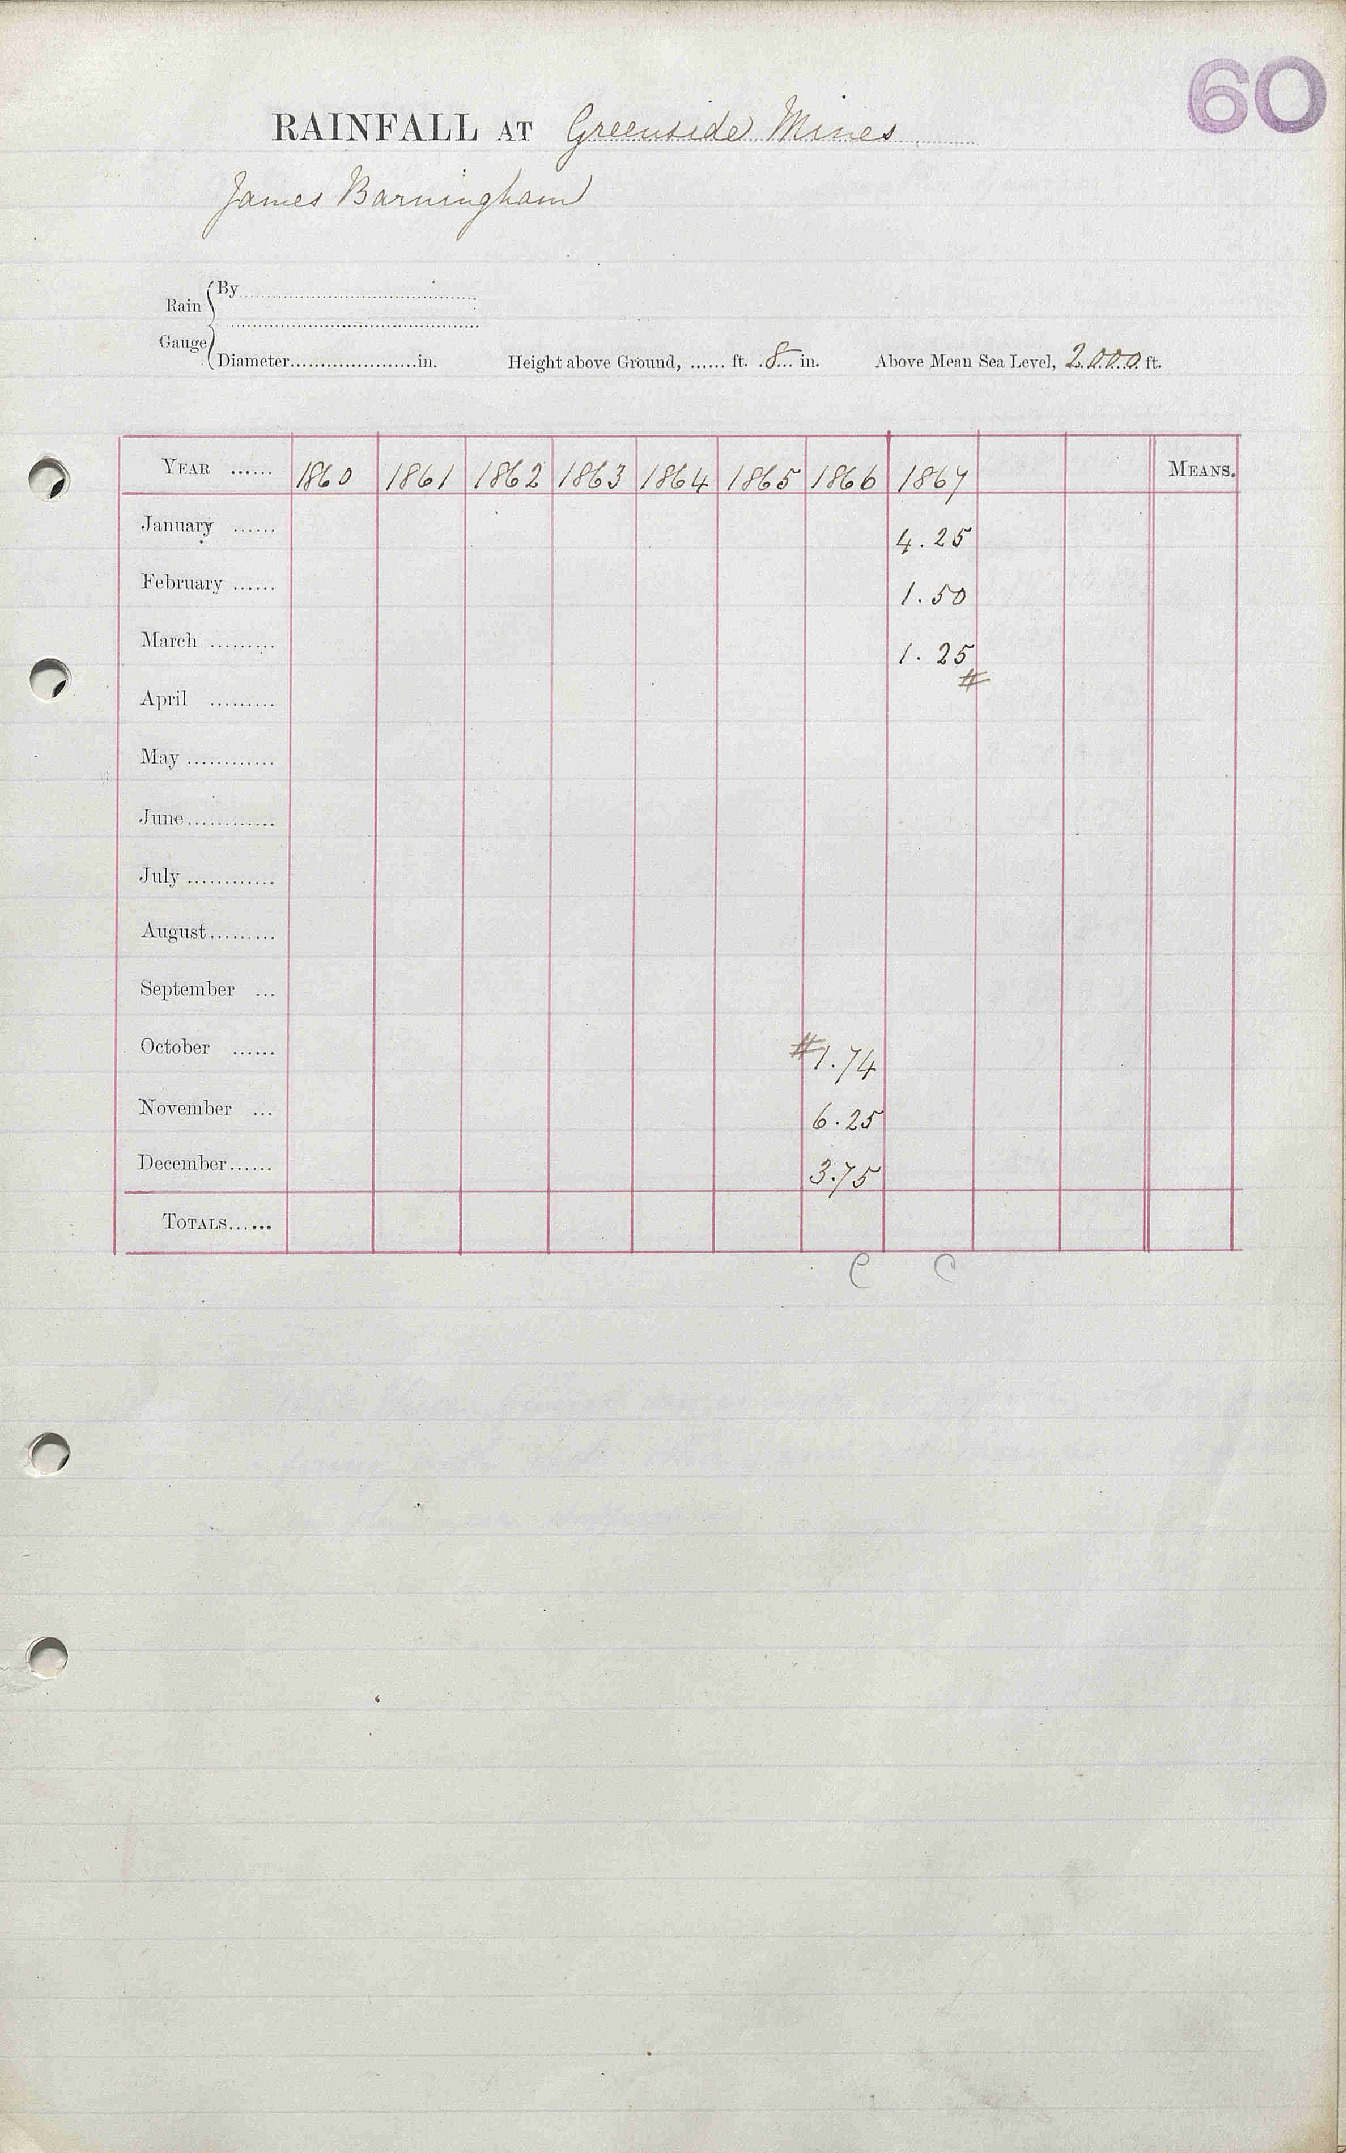 60
RAINFALL AT Greenside Mines
James Barningham
Rain Gauge
By
Diameter.....................in. Height above Ground, ...... ft. 8 in. Above Mean Sea Level, 2000 ft.
YEAR ...... 1860 1861 1862 1863 1864 1865 1866 1867 MEANS.
January ...... 4.25
February ...... 1.50
March ......... 1.25 #
April .........
May ............
June............
July ............
August.........
September ...
October ...... #1.74
November ... 6.25
December...... 3.75
TOTALS......
C C